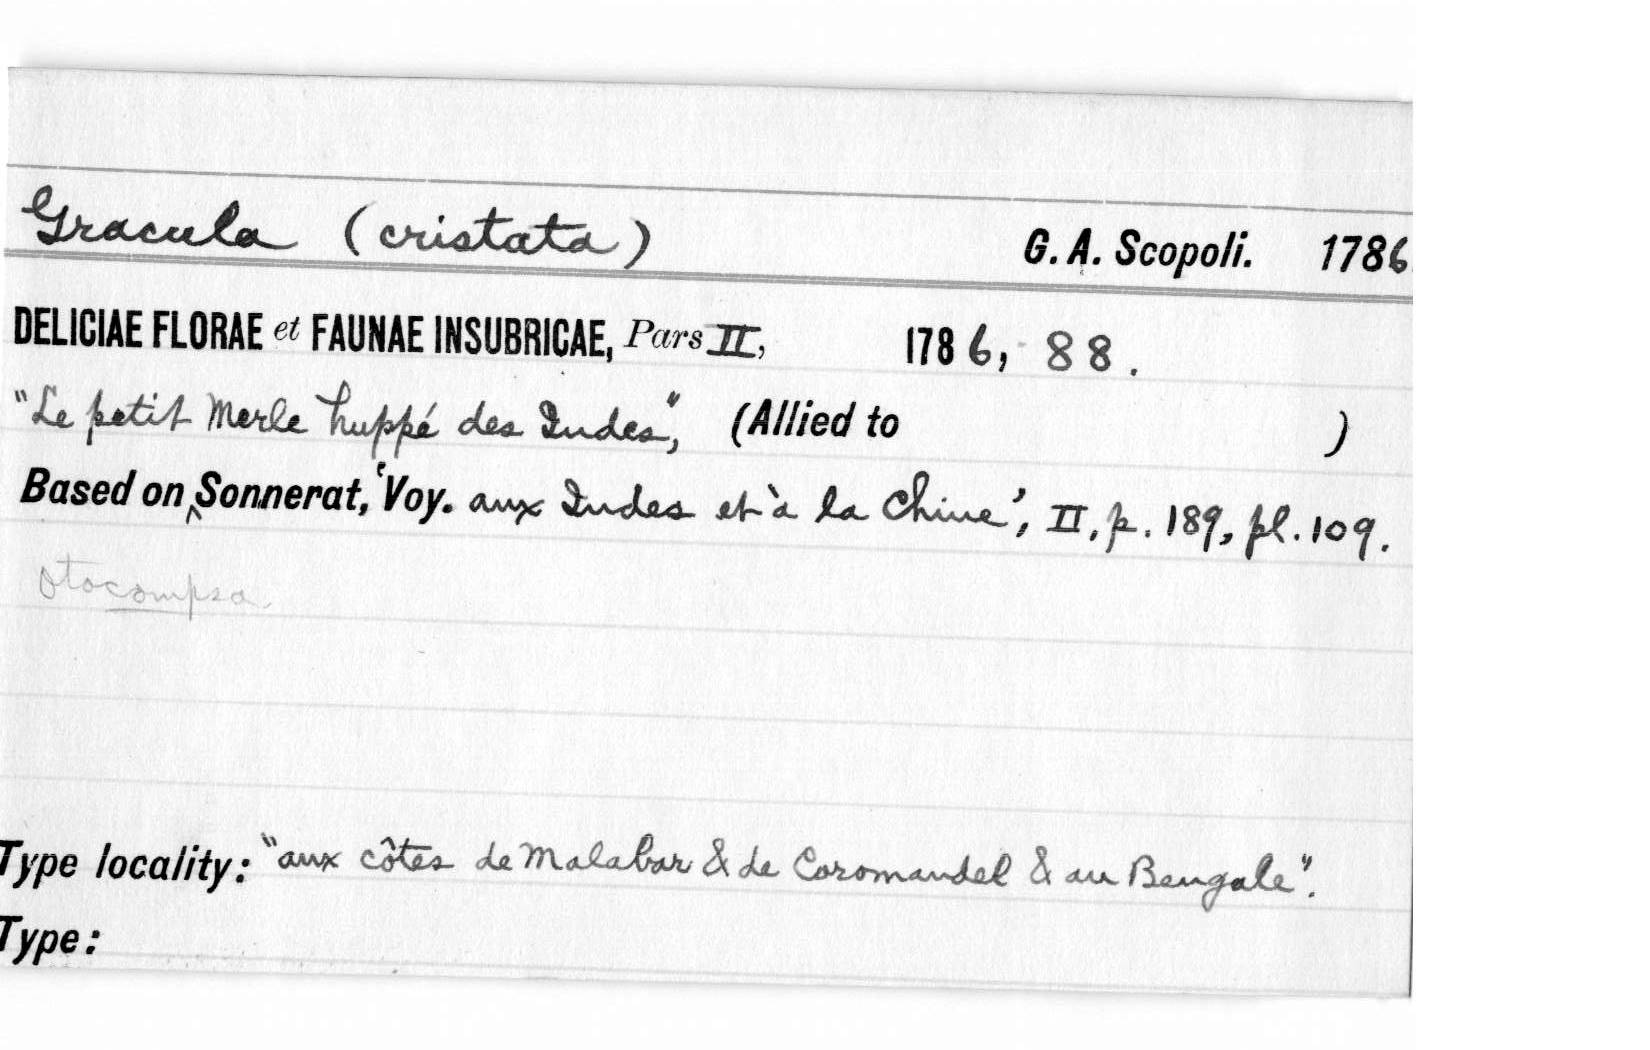 Gracula (cristata) G. A. Scopoli. 1786
DELICIAE FLORAE et FAUNAE INSUBRICAE, Pars II, 1786, 88.
"Le petit Merle huppé des Indes", (Allied to )
Based on Sonnerat, 'Voy. aux Indes et à la Chine', II, p. 189, pl. 109.
Otocompsa
Type locality: "aux côtes de Malabar & de Coromandel & au Bengale".
Type: